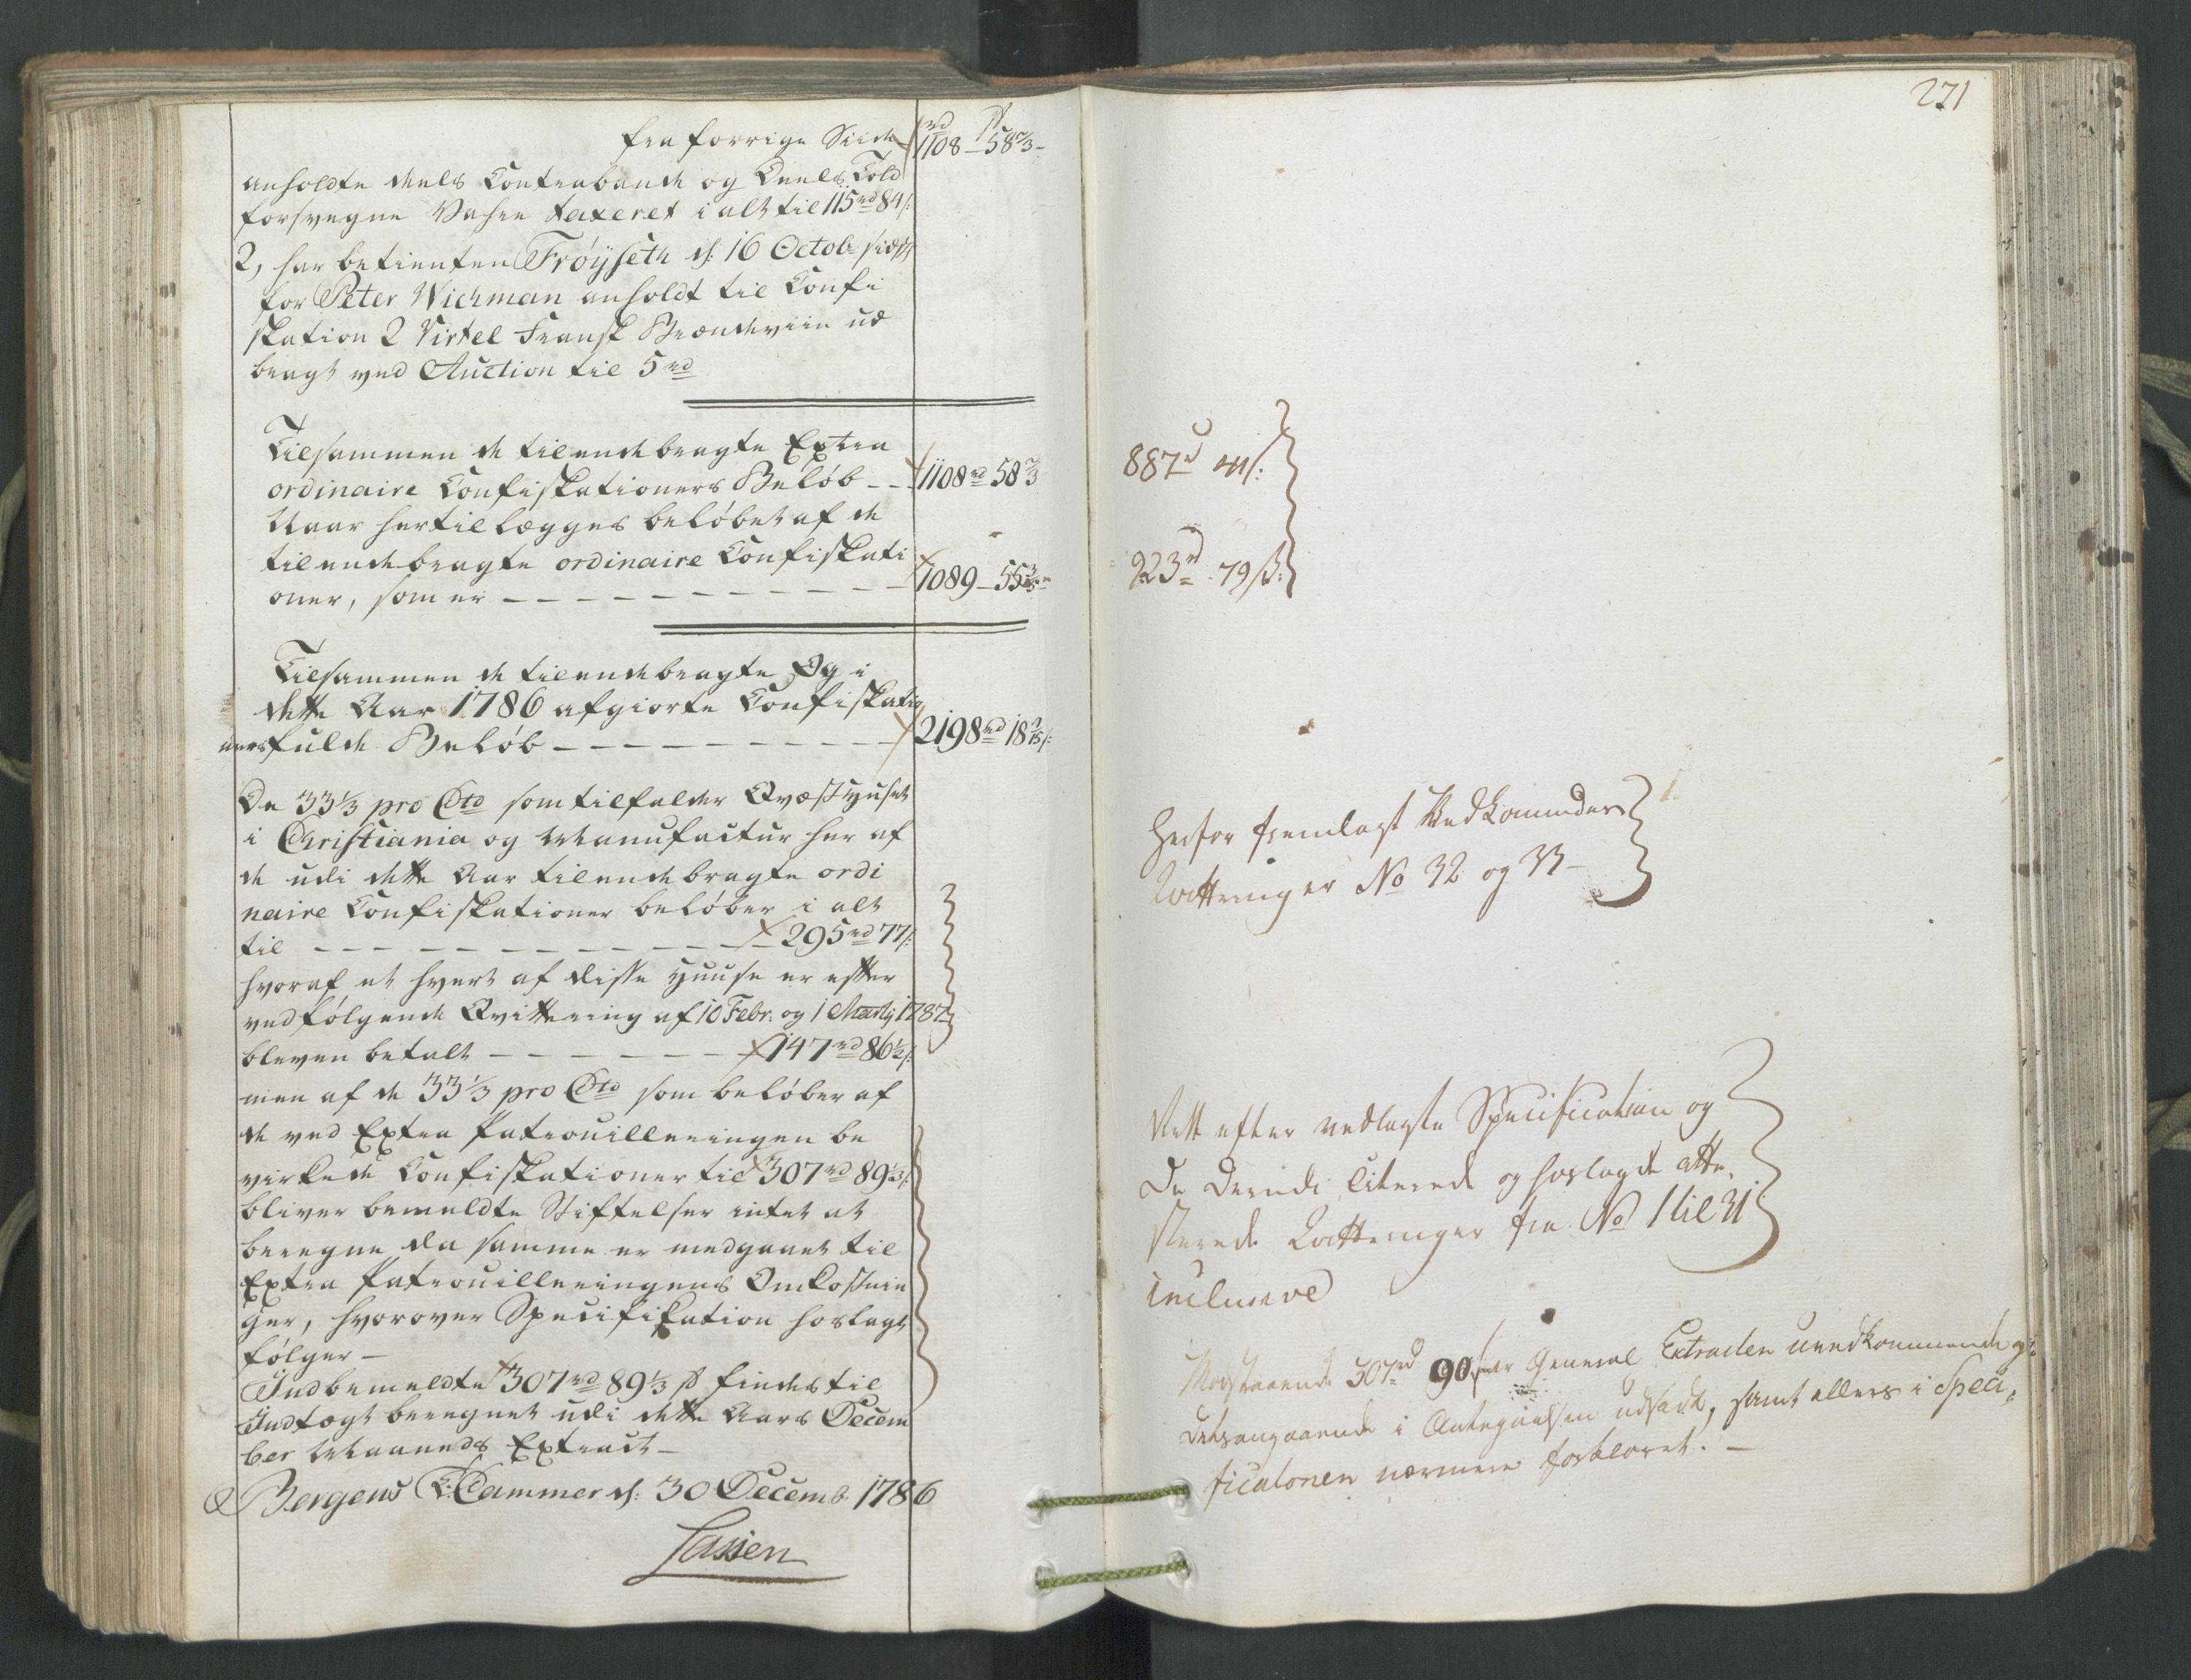 fra forrige Siide 1108 rd 58 2/3 ß
anholdte deels Contrabande og Deels Told
forsvegne Vahre taxeret i alt til 115 rd 84 ß:
2, har betienten Fröyseth d: 16 Octobr sidst
for Peter Wichman anholdt til Confi
skation 2 Virtel Fransk Brændeviin ud
bragt ved Auction til 5 rd
Tilsammen de tilendebragte Extra
ordinaire Confiskationers Beløb - - 1108 rd 58 2/3
Naar hertil lægges beløbet af de
tilendebragte ordinaire Confiskati
oner, som er - - - 1089 - 55
Tilsammen de tilendebragte Og i
dette Aar 1786 afgiorte Confiskatio
ners fulde Beløb - - - 2198 rd 18 ß:
De 33 1/3 pro Cto som tilfalder Qvæsthuset
i Christiania og Manufactur her af
de udi dette Aar tilendebragte ordi
naire Confiskationer beløber i alt
til - - - 295 rd 77 ß:
hvoraf et hvert af disse Huuse er efter
vedfølgende Qvittering af 10 Febr: og 1 Martij 1787
bleven betalt - - - 147 rd 86 1/2 ß:
men af de 33 1/3 pro Cto som beløber af
de ved Extra Patrouilleringen be
virkede Confiskationer til 307 rd 89 1/3 ß:
bliver bemeldte Stiftelser intet at
beregne da samme er medgaaet til
Extra Patrouilleringens Omkostnin
ger, hvorover Specifikation hoslagt
følger -
Indbemeldte 307 rd 89 1/3 ß findes til
Indtægt beregnet udi dette Aars Decem
ber Maaneds Extract -
Bergens T: Cammer d: 30 Decemb. 1786
Lassen
271
887 rd ß:
223 rd 79 ß:
Herfor fremlagt Vedkommendes
Qvitteringer No 32 og 33 -
Rett efter vedlagte Specification og
De Derudi Citerede og hoslagde atte,
sterede Qvitteringer fra No 1 til 31
inclusive
Modstaaende 307 rd 90 ß er General Extracten uvedkommende og
Detsangaaende i Antegnelsen udsadt, samt ellers i Speci,
ficationen nærmere forklaret. -